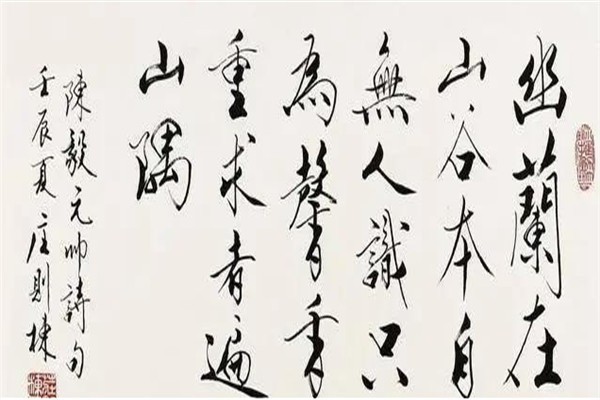 幽蘭在
山谷本自
無人識只
為馨香
重求者遍
山隅
陳毅元帥詩句
壬辰夏庄則棟